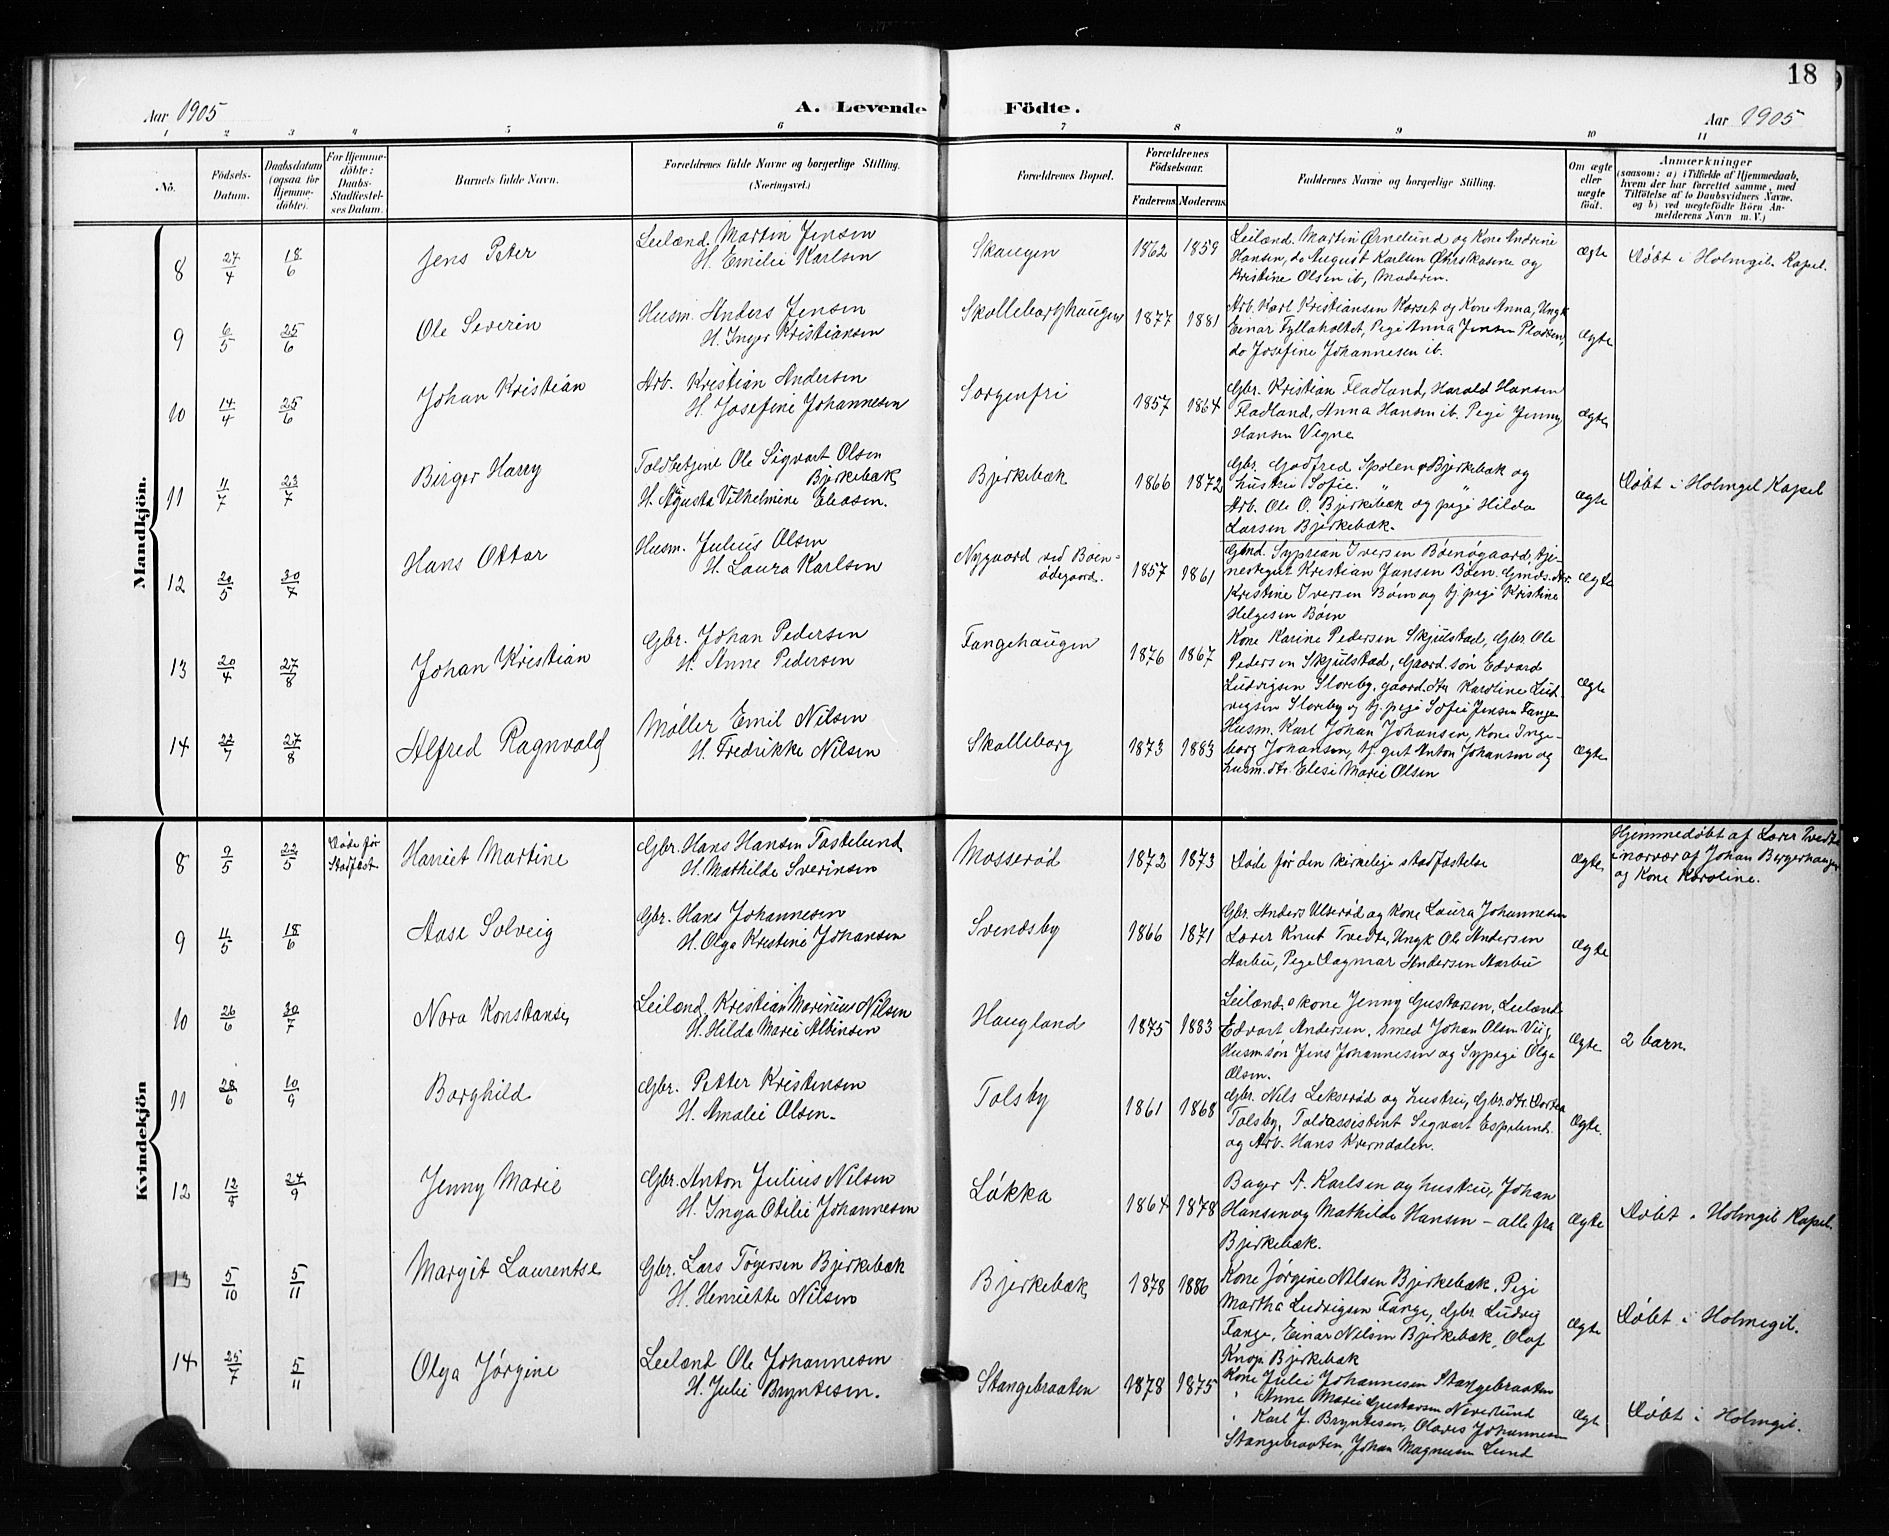 18
Aar 1905
A. Levende Födte.
Aar 1905
1 2 3 4 5 6 7 8 9 10 11
No.
Födsels-
Datum.
Daabsdatum
(ogsaa for
Hjemme-
döbte).
For Hjemme-
döbte:
Daabs-
Stadfæstel-
ses Datum.
Barnets fulde Navn.
Forældrenes fulde Navne og borgerlige Stilling.
(Næringsvei.)
Forældrenes Bopæl.
Forældrenes
Födselsaar.
Faderens Moderens
Faddernes Navne og borgerlige Stilling.
Om ægte
eller
uægte
födt.
Anmærkninger
(saasom: a) i Tilfælde af Hjemmedaab,
hvem der har forrettet samme, med
Tilföielse af to Daabsvidners Navne,
og b) ved uægtefödte Börn An-
melderens Navn m. V.)
Mandkjön.
8 27/4 18/6 Jens Peter
Leilænd. Martin Jensen
H. Emilie Karlsen
Skaugen 1862 1859
Leilænd. Martin Ørnelund og Kone Andrine
Hansen, do August Karlsen og
Kristine Olsen ib, Moderen.
Ægte Døbt i Holmgil. Kapel.
9 6/5 25/6 Ole Severin
Husm. Anders Jensen
H. Inger Kristiansen
Skolleborghaugen 1877 1881
Arb. Karl Kristiansen Korset og Kone Anna, Ungk
Einar Fyllaholtet, Pige Anna Jensen
do Josefine Johannesen ib.
Ægte
10 14/4 25/6 Johan Kristian
Arb. Kristian Andersen
H. Josefine Johannesen
Sorgenfri 1857 1864
Gbr. Kristian Fladland, Harald Hansen
Fladland, Anna Hansen ib. Pige Jenny
Hansen Vegne
Ægte
11 11/7 23/7 Birger Harry
Toldbetjent Ole Sigvart Olsen
Bjerkebæk
H. Augusta Vilhelmine Eliasen.
Bjerkebæk 1866 1872
Gbr. Godfred Spolen Bjerkebæk og
hustru Sofie. " "
Arb. Ole O. Bjerkebæk og pige Hilda
Larsen Bjerkebæk.
Ægte Døbt i Holmgil Kapel
12 20/5 30/7 Hans Ottar
Husm. Julius Olsen
H. Laura Karlsen
Nygaard ved Böen-
ødegaard. 1857 1861
Gbnd. Syprian Iversen Böenøgaard, tje-
nestegut Kristian Jansen Böen. Gmds. dtr.
Kristine Iversen Böen og tj. pige Kristine
Helgesen Böen
Ægte
13 20/4 27/8 Johan Kristian
Gbr. Johan Pedersen
H. Anne Pedersen
Fangehaugen 1876 1867
Kone Karine Pedersen Skjulstad, Gbr Ole
Pedersen Skjulstad, Gaard. søn Edvard
Ludvigsen Sloreby, gaard. dtr. Karoline Lud-
vigsen Sloreby og tj. pige Sofie Jensen Fange
Ægte
14 22/7 27/8 Alfred Ragnvald
Møller Emil Nilsen
H. Fredrikke Nilsen
Skolleborg 1873 1883
Husm. Karl Johan Johansen, Kone Inge-
borg Johansen, tj. gut Anton Johansen og
husm. dtr. Elise Marie Olsen
Ægte
Kvindekjön
8 9/5 22/5 Døde før
Stadfæst. Harriet Martine
Gbr. Hans Hansen Tastelund
H. Mathilde Sverinsen
Mosserød 1872 1873
Døde før den kirkelige stadfæstelse
Ægte
Hjemmedøbt af Lærer Tvedte
i nærvær af Johan Bergerhaugen
og Kone Karoline.
9 11/5 18/6 Aase Solveig
Gbr. Hans Johannesen
H. Olga Kristine Johansen
Svendsby 1866 1871
Gbr. Anders Ulserød og Kone Laura Johannesen
Lærer Knut Tvedte, Ungk Ole Andersen
Aarbu, Pige Dagmar Andersen Aarbu
Ægte
10 26/6 30/7 Nora Konstanse
Leilænd. Kristian Marinius Nilsen
H. Hilda Marie Albinsen
Haugland 1875 1883
Leilænd. kone Jenny Gustavsen, Leilænd
Edvart Andersen, smed Johan Olsen Viig,
Husm. søn Jens Johannesen og Sypige Olga
Olsen.
Ægte 2 barn.
11 28/6 10/9 Borghild
Gbr. Petter Kristensen
H. Amalie Olsen.
Tolsby 1861 1868
Gbr. Nils Lekserød og hustru, Gbr. dtr. Dortea
Tolsby, Toldassistent Sigvart Espelund
og Arb. Hans Kverndalen.
Ægte.
12 12/5 24/9 Jenny Marie
Gbr. Anton Julius Nilsen
H. Inga Otilie Johannesen
Løkka 1864 1878
Bager A. Karlsen og hustru, Johan
Hansen og Mathilde Hansen – alle fra
Bjerkebæk.
Ægte Døbt i Holmgil Kapel.
13 5/10 5/11 Margit Laurentse
Gbr. Lars Tøgersen Bjerkebæk
H. Henriette Nilsen
Bjerkebæk 1878 1886
Kone Jørgine Nilsen Bjerkebæk, Pige
Martha Ludvigsen Fange, Gbr Ludvig
Fange, Einar Nilsen Bjerkebæk, Olaf
Knop Bjerkebæk
Ægte Døbt i Holmegil.
14 25/7 5/11 Olga Jørgine
Leilænd Ole Johannesen
H. Julie Bryntesen.
Stangebraaten 1878 1875
Kone Julie Johannesen Stangebraaten
" Anne Marie Gustavsen Neverlund
" Karl J. Bryntesen, Olaves Johannesen
Stangebraaten, Johan Magnusen Lund
Ægt Døbt i Holmgil.